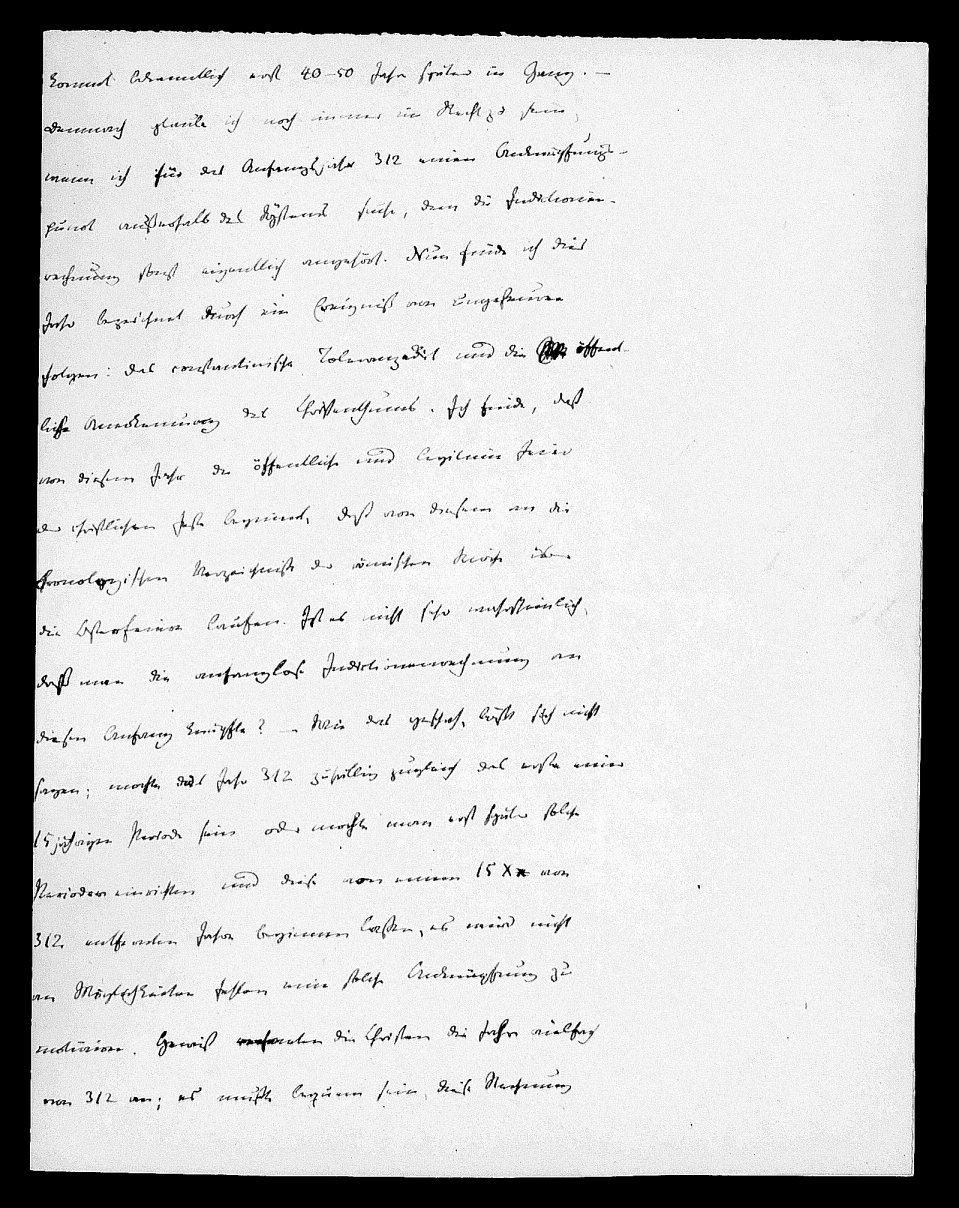 kommt bekanntlich erst 40–50 Jahr später in Gang. –
Demnach glaube ich noch immer im Recht zu sein,
wenn ich für das Anfangsjahr 312 einen Anknüpfungs-
punct außerhalb des Systems suche, dem die Indictionen-
rechnung sonst eigentlich angehört. Nun finde ich dies
Jahr bezeichnet durch ein Ereigniß von ungeheuren
Folgen: das constantinische Toleranzedict und die öffent-
liche Anerkennung des Christenthums. Ich finde, daß
von diesem Jahr die öffentliche und legitime Feier
der christlichen Feste beginnt, daß von diesem an die
chronologischen Verzeichniße der römischen Kirche über
die Osterfeiern laufen. Ist es nicht sehr wahrscheinlich,
daß man die anfanglose Indictionenrechnung an
diesen Anfang knüpfte? – Wie das geschah, läßt sich nicht
sagen; mochte das Jahr 312 zufällig zugleich das erste einer
15jährigen Periode sein oder mochte man erst später solche
Perioden einrichten und diese von einem 15 X x von
312 entfernten Jahre beginnen laßen, es wird nicht
an Möglichkeiten fehlen eine solche Anknüpfung zu
motiviren. Gewiß rechneten die Christen die Jahre vielfach
von 312 an; es mußte bequem sein, diese Rechnung